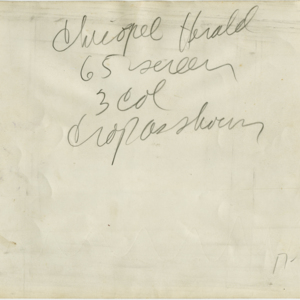 Herald
65 screen
3 Col
Crop as shown